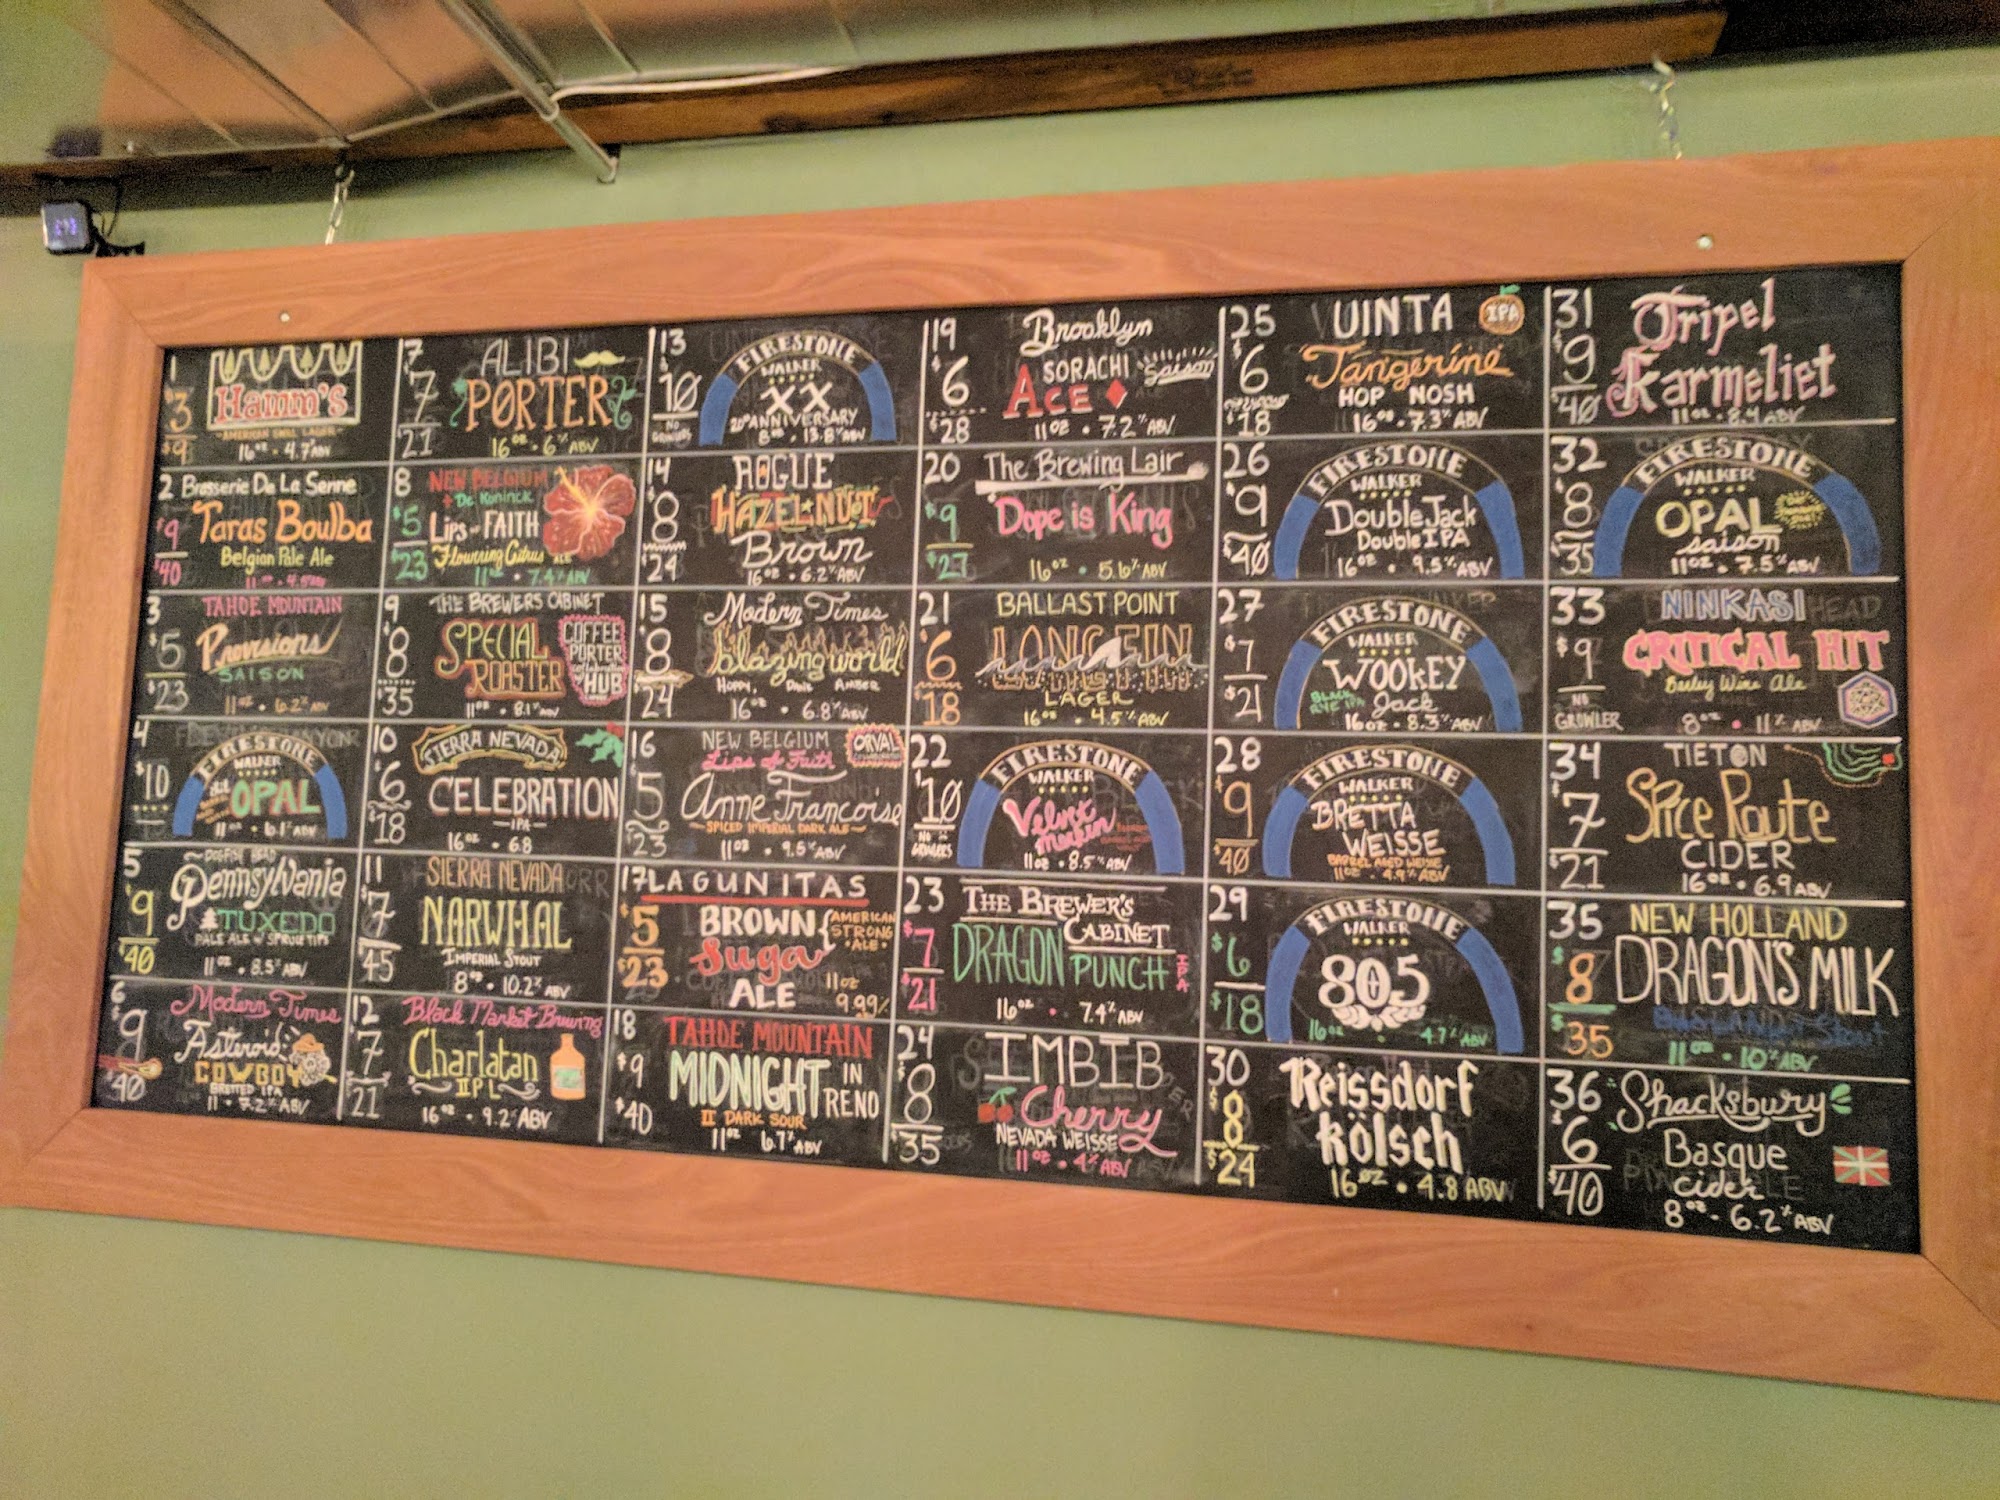 1
$3
$9
Hamm's
"AMERICAN SMALL LAGER"
16oz • 4.7%ABV
2 Brasserie De La Senne
$9
$40
Taras Boulba
Belgian Pale Ale
3
$5
$23
TAHOE MOUNTAIN
Provisions
SAISON
11oz • 6.2%ABV
4
$10
FIRESTONE
WALKER
OPAL
11oz • 6.1%ABV
5
$9
$40
Pennsylvania
TUXEDO
PALE ALE W/ SPRUCE TIPS
11oz • 8.5%ABV
6
$9
$40
Modern Times
Asteroid
COWBOY
BRETTED IPA
11 • 7.2%ABV
7
$7
$21
ALIBI
PORTER
16oz • 6%ABV
8
$5
$23
NEW BELGIUM
+ De Koninck
Lips of FAITH
Flowering Citrus ALE
11oz • 7.4%ABV
9
$8
$35
THE BREWERS CABINET
SPECIAL
ROASTER
COFFEE
PORTER
collaboration
HUB
11oz • 8.1%ABV
10
$6
$18
SIERRA NEVADA
CELEBRATION
-IPA-
16oz • 6.8
11
$7
$45
SIERRA NEVADA
NARWHAL
IMPERIAL STOUT
8oz • 10.2%ABV
12
$7
$21
Black Market Brewing
Charlatan
IPL
16oz • 9.2%ABV
13
$10
NO
GROWLERS
FIRESTONE
WALKER
XX
20th ANNIVERSARY
8oz • 13.8%ABV
14
$8
$24
ROGUE
HAZELNUT
Brown
16oz • 6.2%ABV
15
$8
$24
Modern Times
blazing world
HOPPY, DANK AMBER
16oz • 6.8%ABV
16
$5
$23
NEW BELGIUM
Lips of Faith
ORVAL
Anne Francoise
- SPICED IMPERIAL DARK ALE -
11oz • 9.5%ABV
17 LAGUNITAS
$5
$23
BROWN
Suga
ALE
AMERICAN
STRONG
• ALE •
11oz
9.99%
18
$9
$40
TAHOE MOUNTAIN
MIDNIGHT IN
RENO
II DARK SOUR
11oz 6.7%ABV
19
$6
$28
Brooklyn
SORACHI
ACE
Saison
11oz • 7.2%ABV
20
$9
$27
The Brewing Lair
Dope is King
16oz • 5.6%ABV
21
$6
$18
BALLAST POINT
LONGFIN
LAGER
16oz • 4.5%ABV
22
$10
NO
GROWLERS
FIRESTONE
WALKER
Velvet
Merkin
11oz • 8.5%ABV
23
$7
$21
THE BREWER'S
CABINET
DRAGON PUNCH
IPA
16oz • 7.4%ABV
24
$8
$35
IMBIB
Cherry
NEVADA WEISSE
11oz • 4%ABV
25
$6
$18
UINTA
IPA
Tangerine
HOP NOSH
16oz • 7.3%ABV
26
$9
$40
FIRESTONE
WALKER
Double Jack
Double IPA
16oz • 9.5%ABV
27
$7
$21
FIRESTONE
WALKER
WOOKEY
Jack
BLACK
RYE IPA
16oz • 8.3%ABV
28
$9
$40
FIRESTONE
WALKER
BRETTA
WEISSE
BARREL AGED WEISSE
11oz • 4.9%ABV
29
$6
$18
FIRESTONE
WALKER
805
16oz • 4.7%ABV
30
$8
$24
Reissdorf
kölsch
16oz • 4.8 ABV
31
$9
$40
Tripel
Karmeliet
11oz • 8.4%ABV
32
$8
$35
FIRESTONE
WALKER
OPAL
saison
11oz • 7.5%ABV
33
$9
NO
GROWLER
NINKASI
CRITICAL HIT
Barley Wine Ale
8oz • 11%ABV
34
$7
$21
TIETON
Spice Route
CIDER
16oz • 6.9%ABV
35
$8
$35
NEW HOLLAND
DRAGON'S MILK
11oz • 10%ABV
36
$6
$40
Shacksbury
Basque
cider
8oz • 6.2%ABV